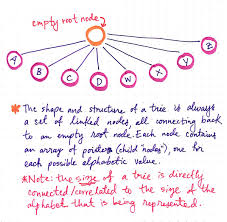 empty root node
A
B
C
D
W
X
Y
Z
* The shape and structure of a tree is always
a set of linked nodes, all connecting back
to an empty root node. Each node contains
an array of pointers (child "nodes"), one for
each possible alphabetic value.
* Note: the size of a tree is directly
connected/correlated to the size of the
alphabet that is being represented.